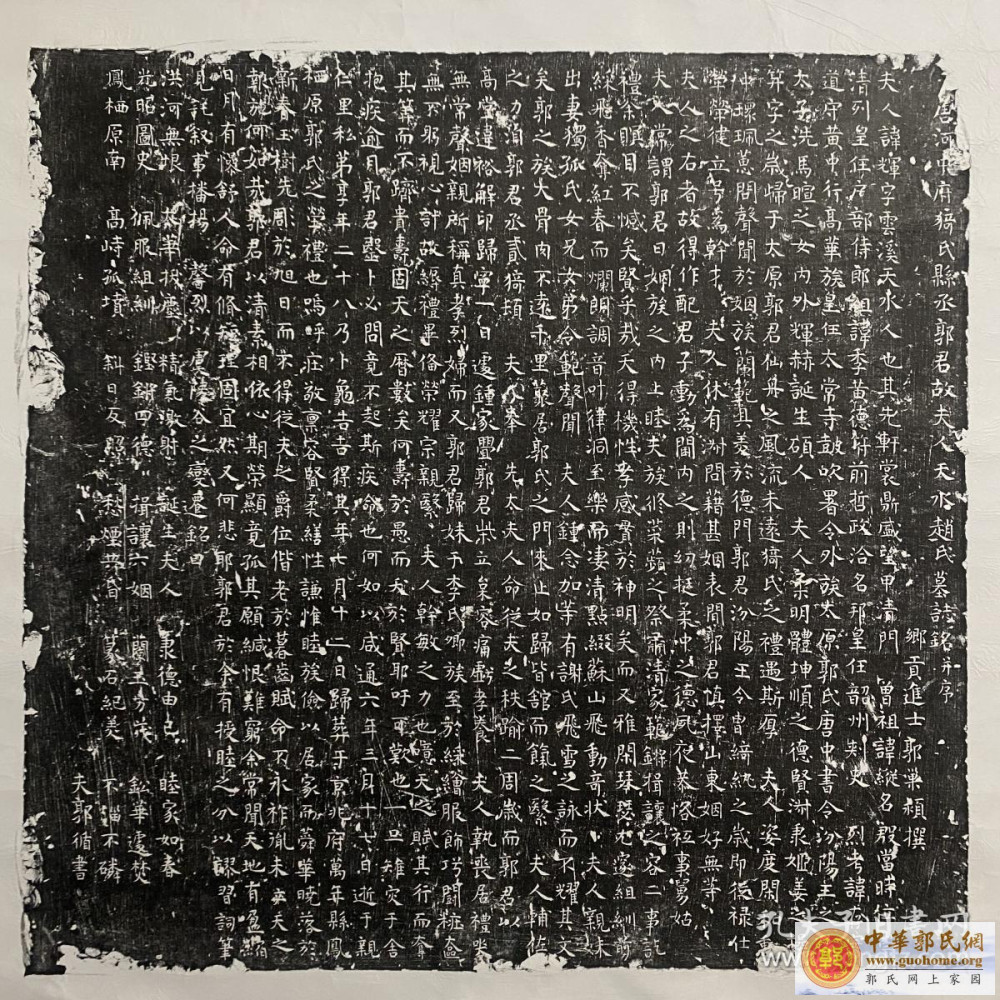 唐河中府猗氏縣丞郭君故夫人天水趙氏墓誌銘并序
鄉貢進士郭巢穎撰
夫人諱輝字雲溪天水人也其先軒裳鼎盛望甲清門 曾祖諱縱名郡當時位
清列皇任戶部侍郎 祖諱季黃德術前哲政洽名邦皇任韶州刺史 烈考諱
道守黃中行高華族皇任太常寺鼓吹署令外族太原郭氏唐中書令汾陽王
太子洗馬暄之女內外輝赫誕生碩人 夫人柔明體坤順之德賢淑秉婭姜之
笄字之歲歸于太原郭君仙舟之風流未遠猗氏之禮遇斯厚 夫人姿度閑
珮蕙問聲聞於姻族蘭範真羨於德門郭君汾陽王令胄締紈之歲即從祿仕
夫人之右者故得作配君子動為閫内之則幼挺柔中之德夙夜恭恪祗事舅姑
夫人常謂郭君曰姻族之內上睦夫族終蘋之祭肅清家範揖讓之容二事託
禮祭瞑目不憾矣賢乎哉天得機性孝感資於神明矣而又雅閑琴瑟尤邃組紃剪
綵飛香奪紅春而爛朗調音叶律洞至樂而凄清點綴蘇山飛動奇狀 夫人親妹
出妻獨孤氏女兄女弟令範聲聞 夫人鍾念加等有謝氏飛雪之詠而不耀其文
矣郭之族大骨肉不遠千里萬居郭氏之門來止如歸皆館而餼之繫 夫人輔佐
之力洎郭君丞貳猗頓 夫人奉 先太夫人命從夫之秩踰二周歲而郭君以
高堂違裕解印歸寧一日遽鍾家舋郭君柴立欒容痛虧孝養 夫人執喪居禮哭
無常聲姻親所稱真孝烈婦而又郭君歸妹于李氏卿族至於綵繪服飾巧鬭粧奩
無不躬視心計故縟禮畢脩榮耀宗親繫 夫人幹敏之力也噫天之賦其行而奪
其筭而不躋貴壽固天之曆數矣何壽於愚而夭於賢耶吁可歎也一旦雉灾于舍
抱疾逾月郭君醫卜必問竟不起斯疾命也何如以咸通六年三月十七日逝于親
仁里私第享年二十八乃卜龜告吉得其年七月十二日歸葬于京兆府萬年縣鳳
栖原郭氏之塋禮也嗚呼莊敬禀容賢柔繕性謙惟睦族儉以居家而舜華曉落於
新春玉樹先凋於旭日而不得從夫之爵位偕老於暮齒賦命不永祚胤未立天之
報施何如哉郭君以清素相依心期榮顯竟孤其願緘恨難窮余常聞天地有盈縮
日月有慘舒人命有脩短理固宜然又何悲耶郭君於余有授睦之分以謬習詞筆
見託叙事播揚 馨烈以虞陵谷之變遷銘曰
洪河無垠 蓊華拔塵 精氣激射 誕生夫人 秉德由己 睦家如春
光昭圖史 佩服組紃 鏗鏘四德 揖讓六姻 蘭玉方茂 鈆華遽焚
鳳栖原南 高峙孤墳 斜日友照 愁煙共昏 篆石紀美 不緇不磷
夫郭循書
孔夫子旧书网
中華郭氏網
www.guohome.org
郭氏网上家园